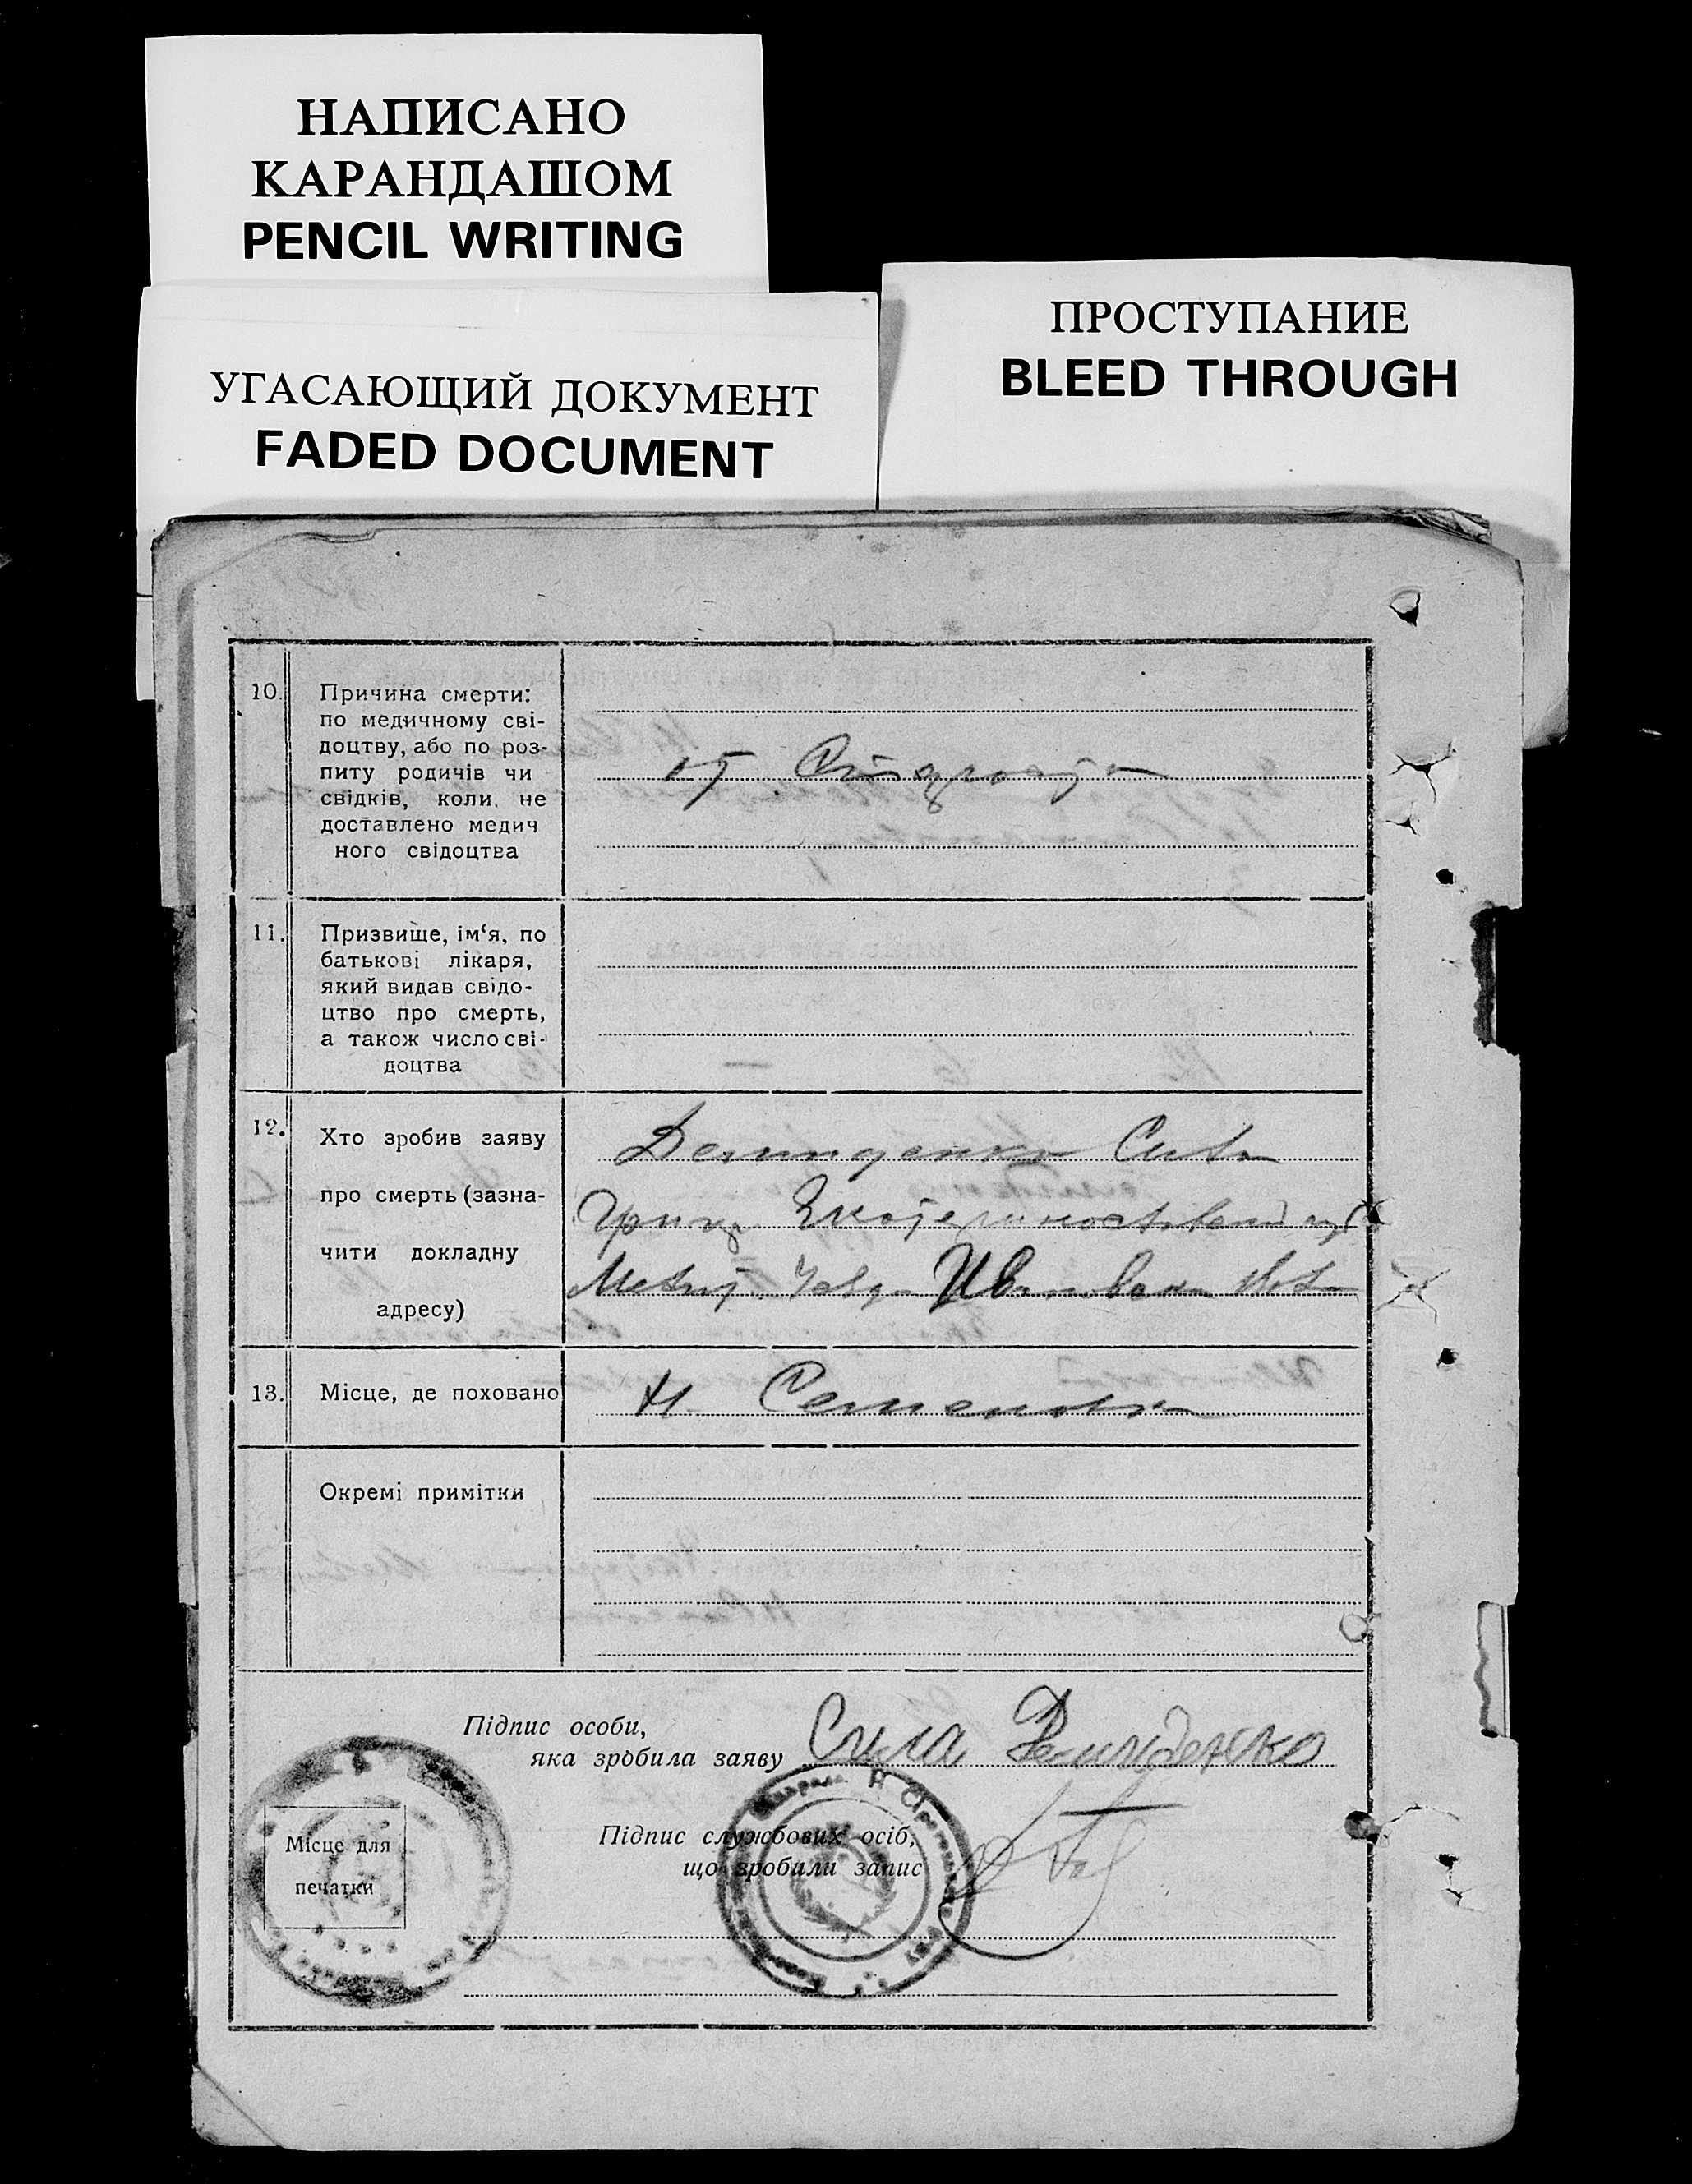 НАПИСАНО
КАРАНДАШОМ
PENCIL WRITING
УГАСАЮЩИЙ ДОКУМЕНТ
FADED DOCUMENT
ПРОСТУПАНИЕ
BLEED THROUGH
10.
Причина смерти:
по медичному сві-
доцтву, або по роз-
питу родичів чи
свідків, коли не
доставлено медич
ного свідоцтва
от
11.
Призвище, ім‘я, по
батькові лікаря,
який видав свідо-
цтво про смерть,
а також число сві-
доцтва
12.
Хто зробив заяву
про смерть (зазна-
чити докладну
адресу)
Демиденко Сила
13.
Місце, де поховано
Н. Семеновка
Окремі примітки
Підпис особи,
яка зробила заяву
Сила Демиденко
Місце для
печатки
Підпис службових осіб,
що зробили запис